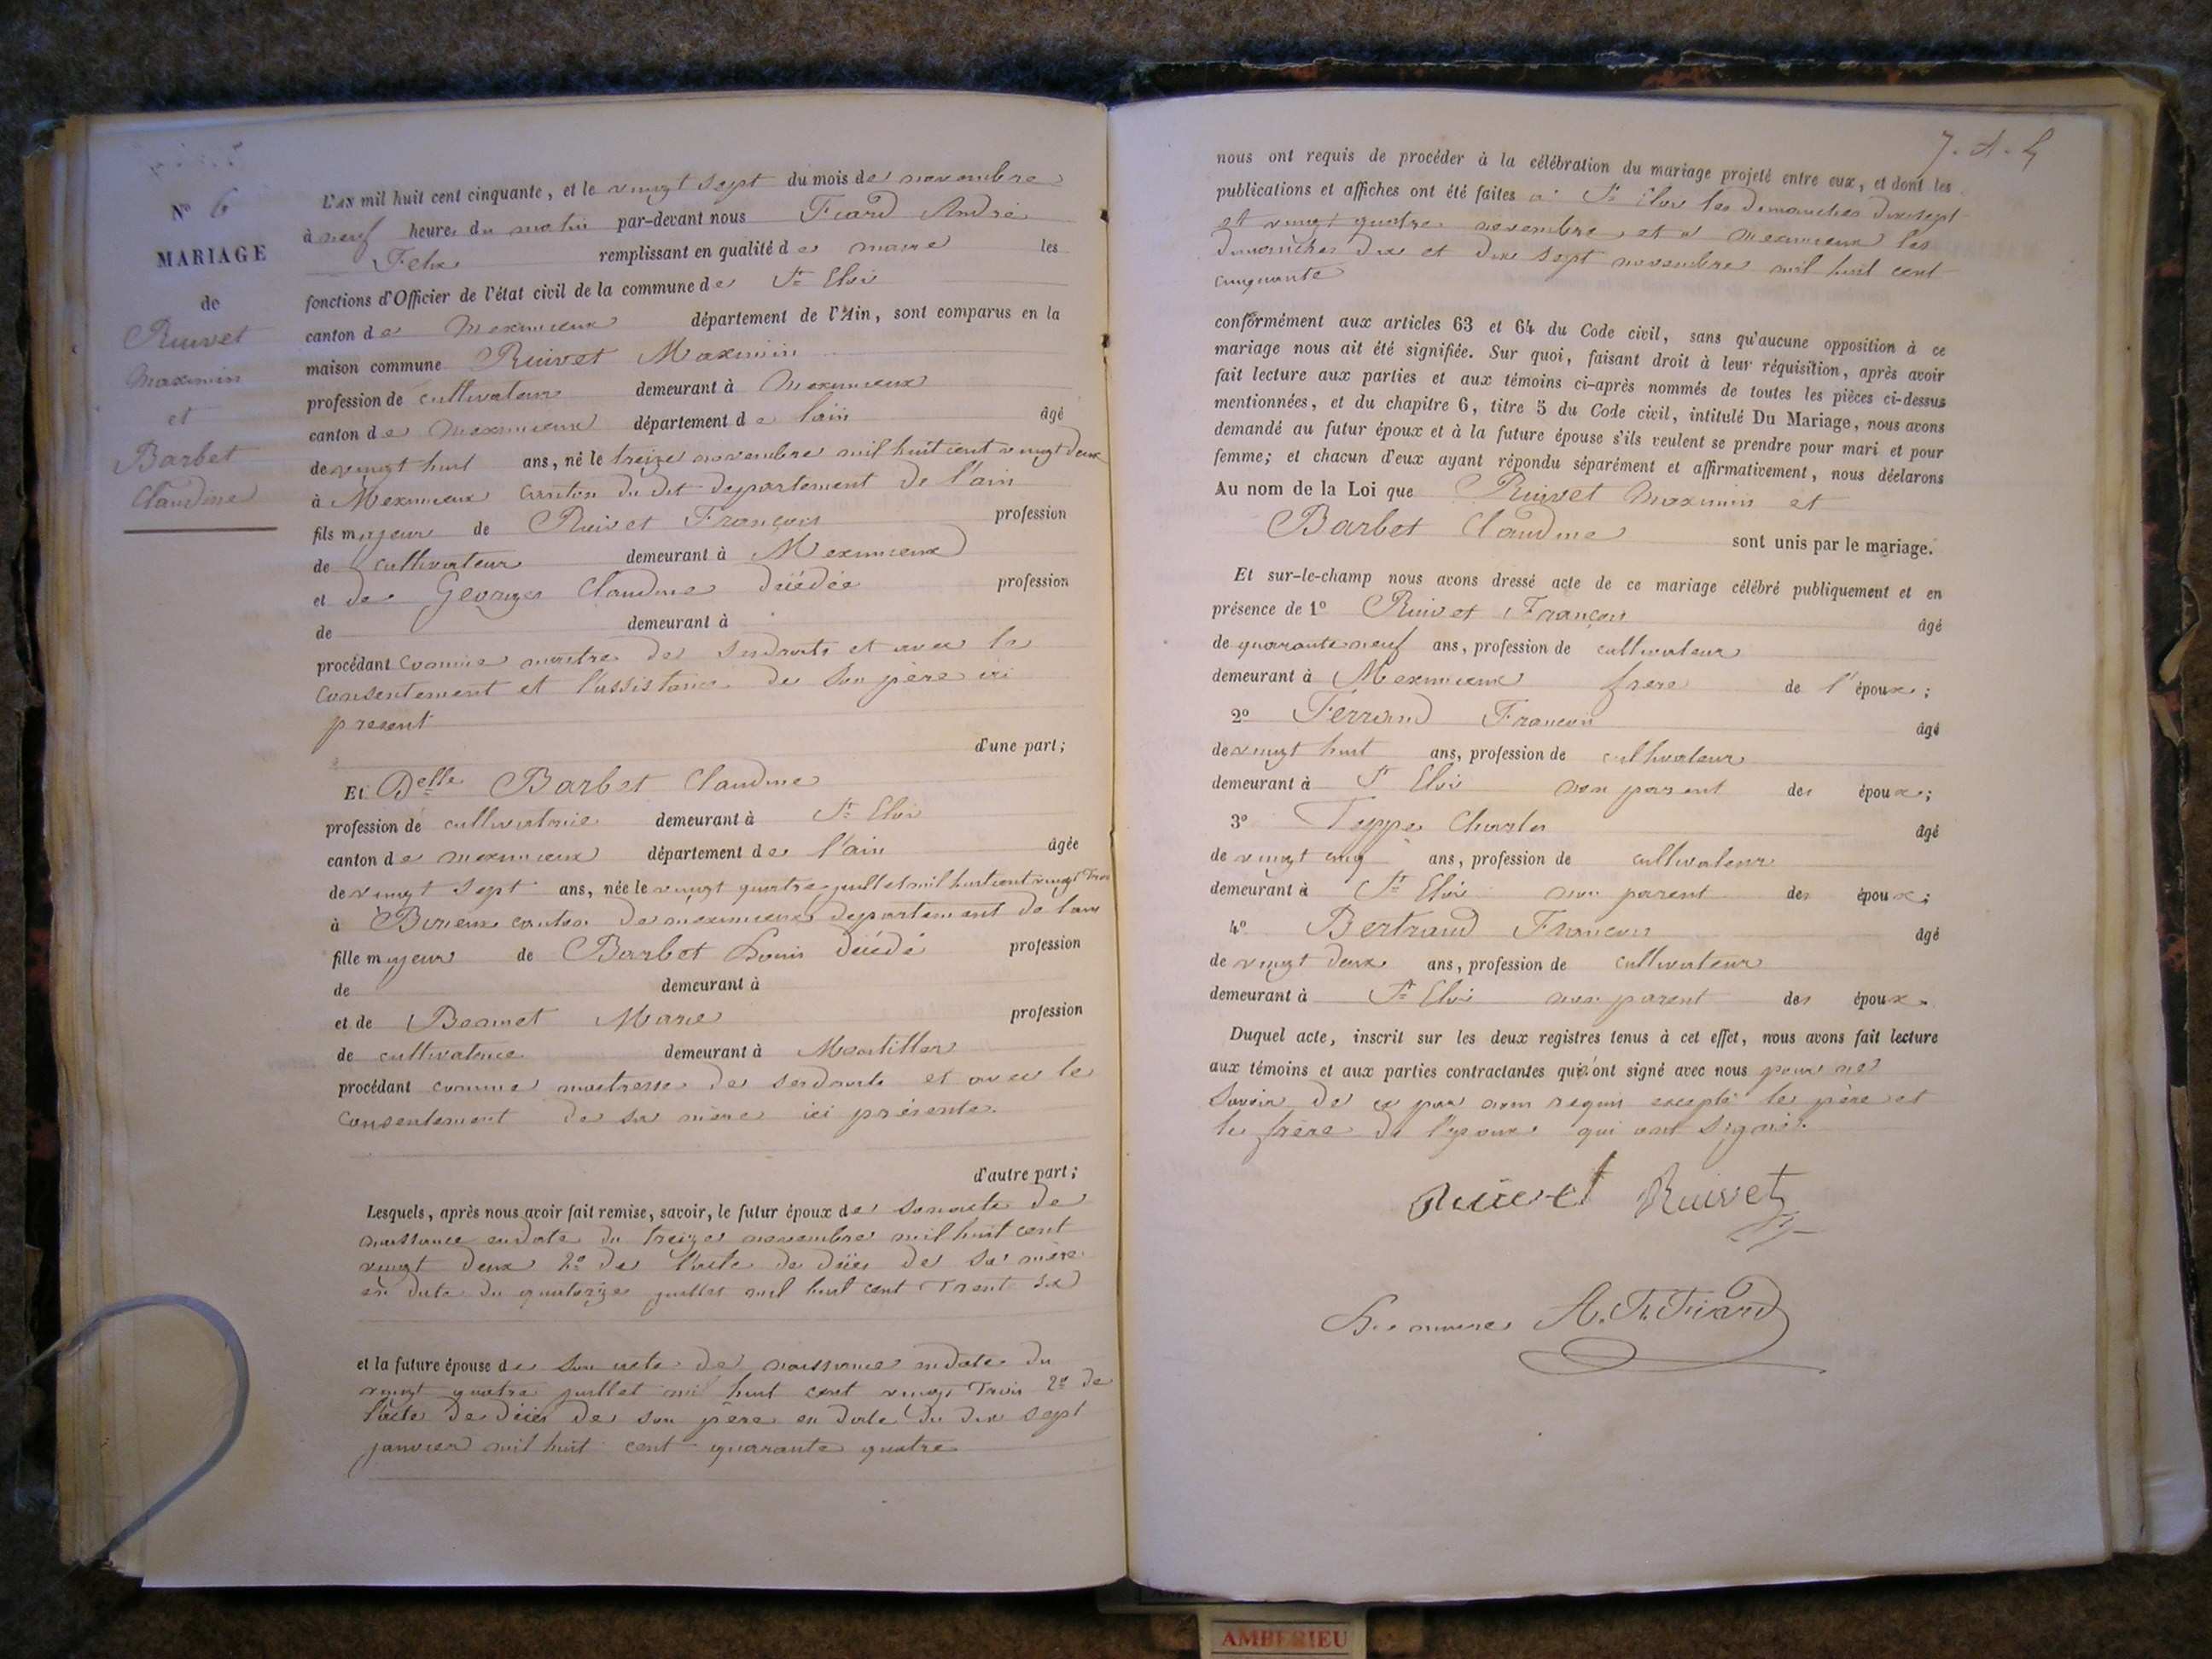 N° 6
MARIAGE
de
Ruivet
Maximin
et
Barbet
Claudine
L'AN mil huit cent cinquante, et le vingt sept du mois de novembre
à neuf heures du matin par-devant nous Fiard André
Felix remplissant en qualité de maire les
fonctions d'Officier de l'état civil de la commune de St Eloi
canton de Meximieux département de l'Ain, sont comparus en la
maison commune Ruivet Maximin
profession de cultivateur demeurant à Meximieux
canton de Meximieux département de l'ain âgé
de vingt huit ans, né le treize novembre mil huit cent vingt deux
à Meximieux canton du dit departement de l'ain
fils majeur de Ruivet François profession
de cultivateur demeurant à Meximieux
et de Georges Claudine décédée profession
de demeurant à
procédant comme maitre de ses droits et avec le
consentement et l'assistance de son père ici
present
d'une part;
Et Delle Barbet Claudine
profession de cultivatrice demeurant à St Eloi
canton de meximieux département de l'ain âgée
de vingt sept ans, née le vingt quatre juillet mil huit cent vingt trois
à Birieux canton de meximieux departement de l'ain
fille majeur de Barbet Louis décédé profession
de demeurant à
et de Marie profession
de cultivatrice demeurant à Montillier
procédant comme maitresse de ses droits et avec le
consentement de sa mère ici présente.
d'autre part;
Lesquels, après nous avoir fait remise, savoir, le futur époux de son acte de
naissance en date du treize novembre mil huit cent
vingt deux 2° de l'acte de décès de sa mère
en date du quatorze juillet mil huit cent trent six
et la future épouse de son acte de naissance en date du
vingt quatre juillet mil huit cent vingt trois 2° de
l'acte de décès de son père en date du dix sept
janvier mil huit cent quarante quatre
nous ont requis de procéder à la célébration du mariage projeté entre eux, et dont les
publications et affiches ont été faites à St Eloi les dimanches dix sept
et vingt quatre novembre et à meximieux les
dimanches dix et dix sept novembre mil huit cent
cinquante
conformément aux articles 63 et 64 du Code civil, sans qu'aucune opposition à ce
mariage nous ait été signifiée. Sur quoi, faisant droit à leur réquisition, après avoir
fait lecture aux parties et aux témoins ci-après nommés de toutes les pièces ci-dessus
mentionnées, et du chapitre 6, titre 5 du Code civil, intitulé Du Mariage, nous avons
demandé au futur époux et à la future épouse s'ils veulent se prendre pour mari et pour
femme; et chacun d'eux ayant répondu séparément et affirmativement, nous déclarons
Au nom de la Loi que Ruivet Maximin et
Barbet Claudine sont unis par le mariage.
Et sur-le-champ nous avons dressé acte de ce mariage célébré publiquement et en
présence de 1° Ruivet François âgé
de quarante neuf ans, profession de cultivateur
demeurant à Meximieux frere de l'époux;
2° Ferrand François âgé
de vingt huit ans, profession de cultivateur
demeurant à St Eloi non parent des époux;
3° Teppe Charles âgé
de vingt cinq ans, profession de cultivateur
demeurant à St Eloi non parent des époux;
4° Bertrand François âgé
de vingt deux ans, profession de cultivateur
demeurant à St Eloi non parent des époux.
Duquel acte, inscrit sur les deux registres tenus à cet effet, nous avons fait lecture
aux témoins et aux parties contractantes qui n'ont signé avec nous pour ne
savoir de ce par nous requis excepté le père et
le frère de l'epoux qui ont signé.
Ruivet Ruivet
Le maire A. F. Fiard
AMBERIEU